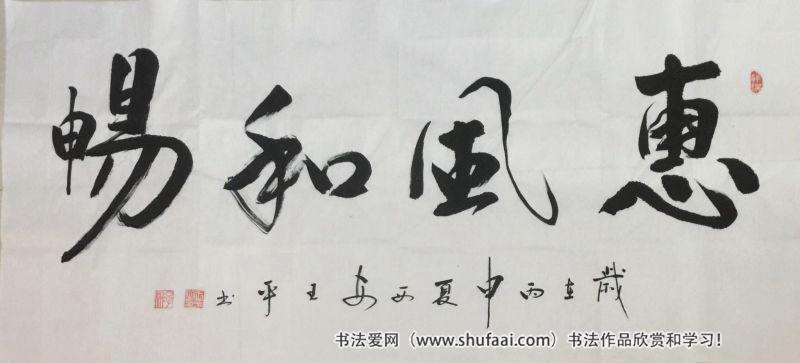 惠風和暢
歲在丙申夏西安王平书
书法爱网（www.shufaai.com）书法作品欣赏和学习！